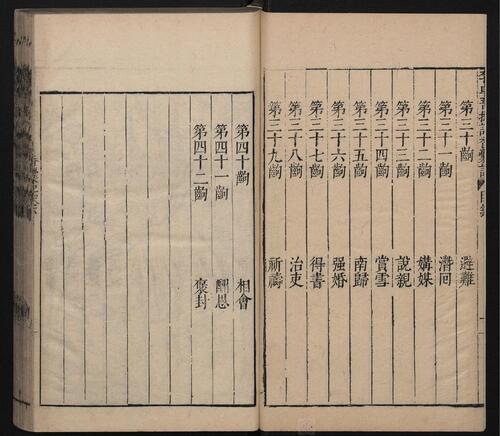 目錄
第三十齣 避難
第三十一齣 潛回
第三十二齣 媾媒
第三十三齣 說親
第三十四齣 賞雪
第三十五齣 南歸
第三十六齣 强婚
第三十七齣 得書
第三十八齣 治吏
第三十九齣 祈禱
第四十齣 相會
第四十一齣 酬恩
第四十二齣 褒封